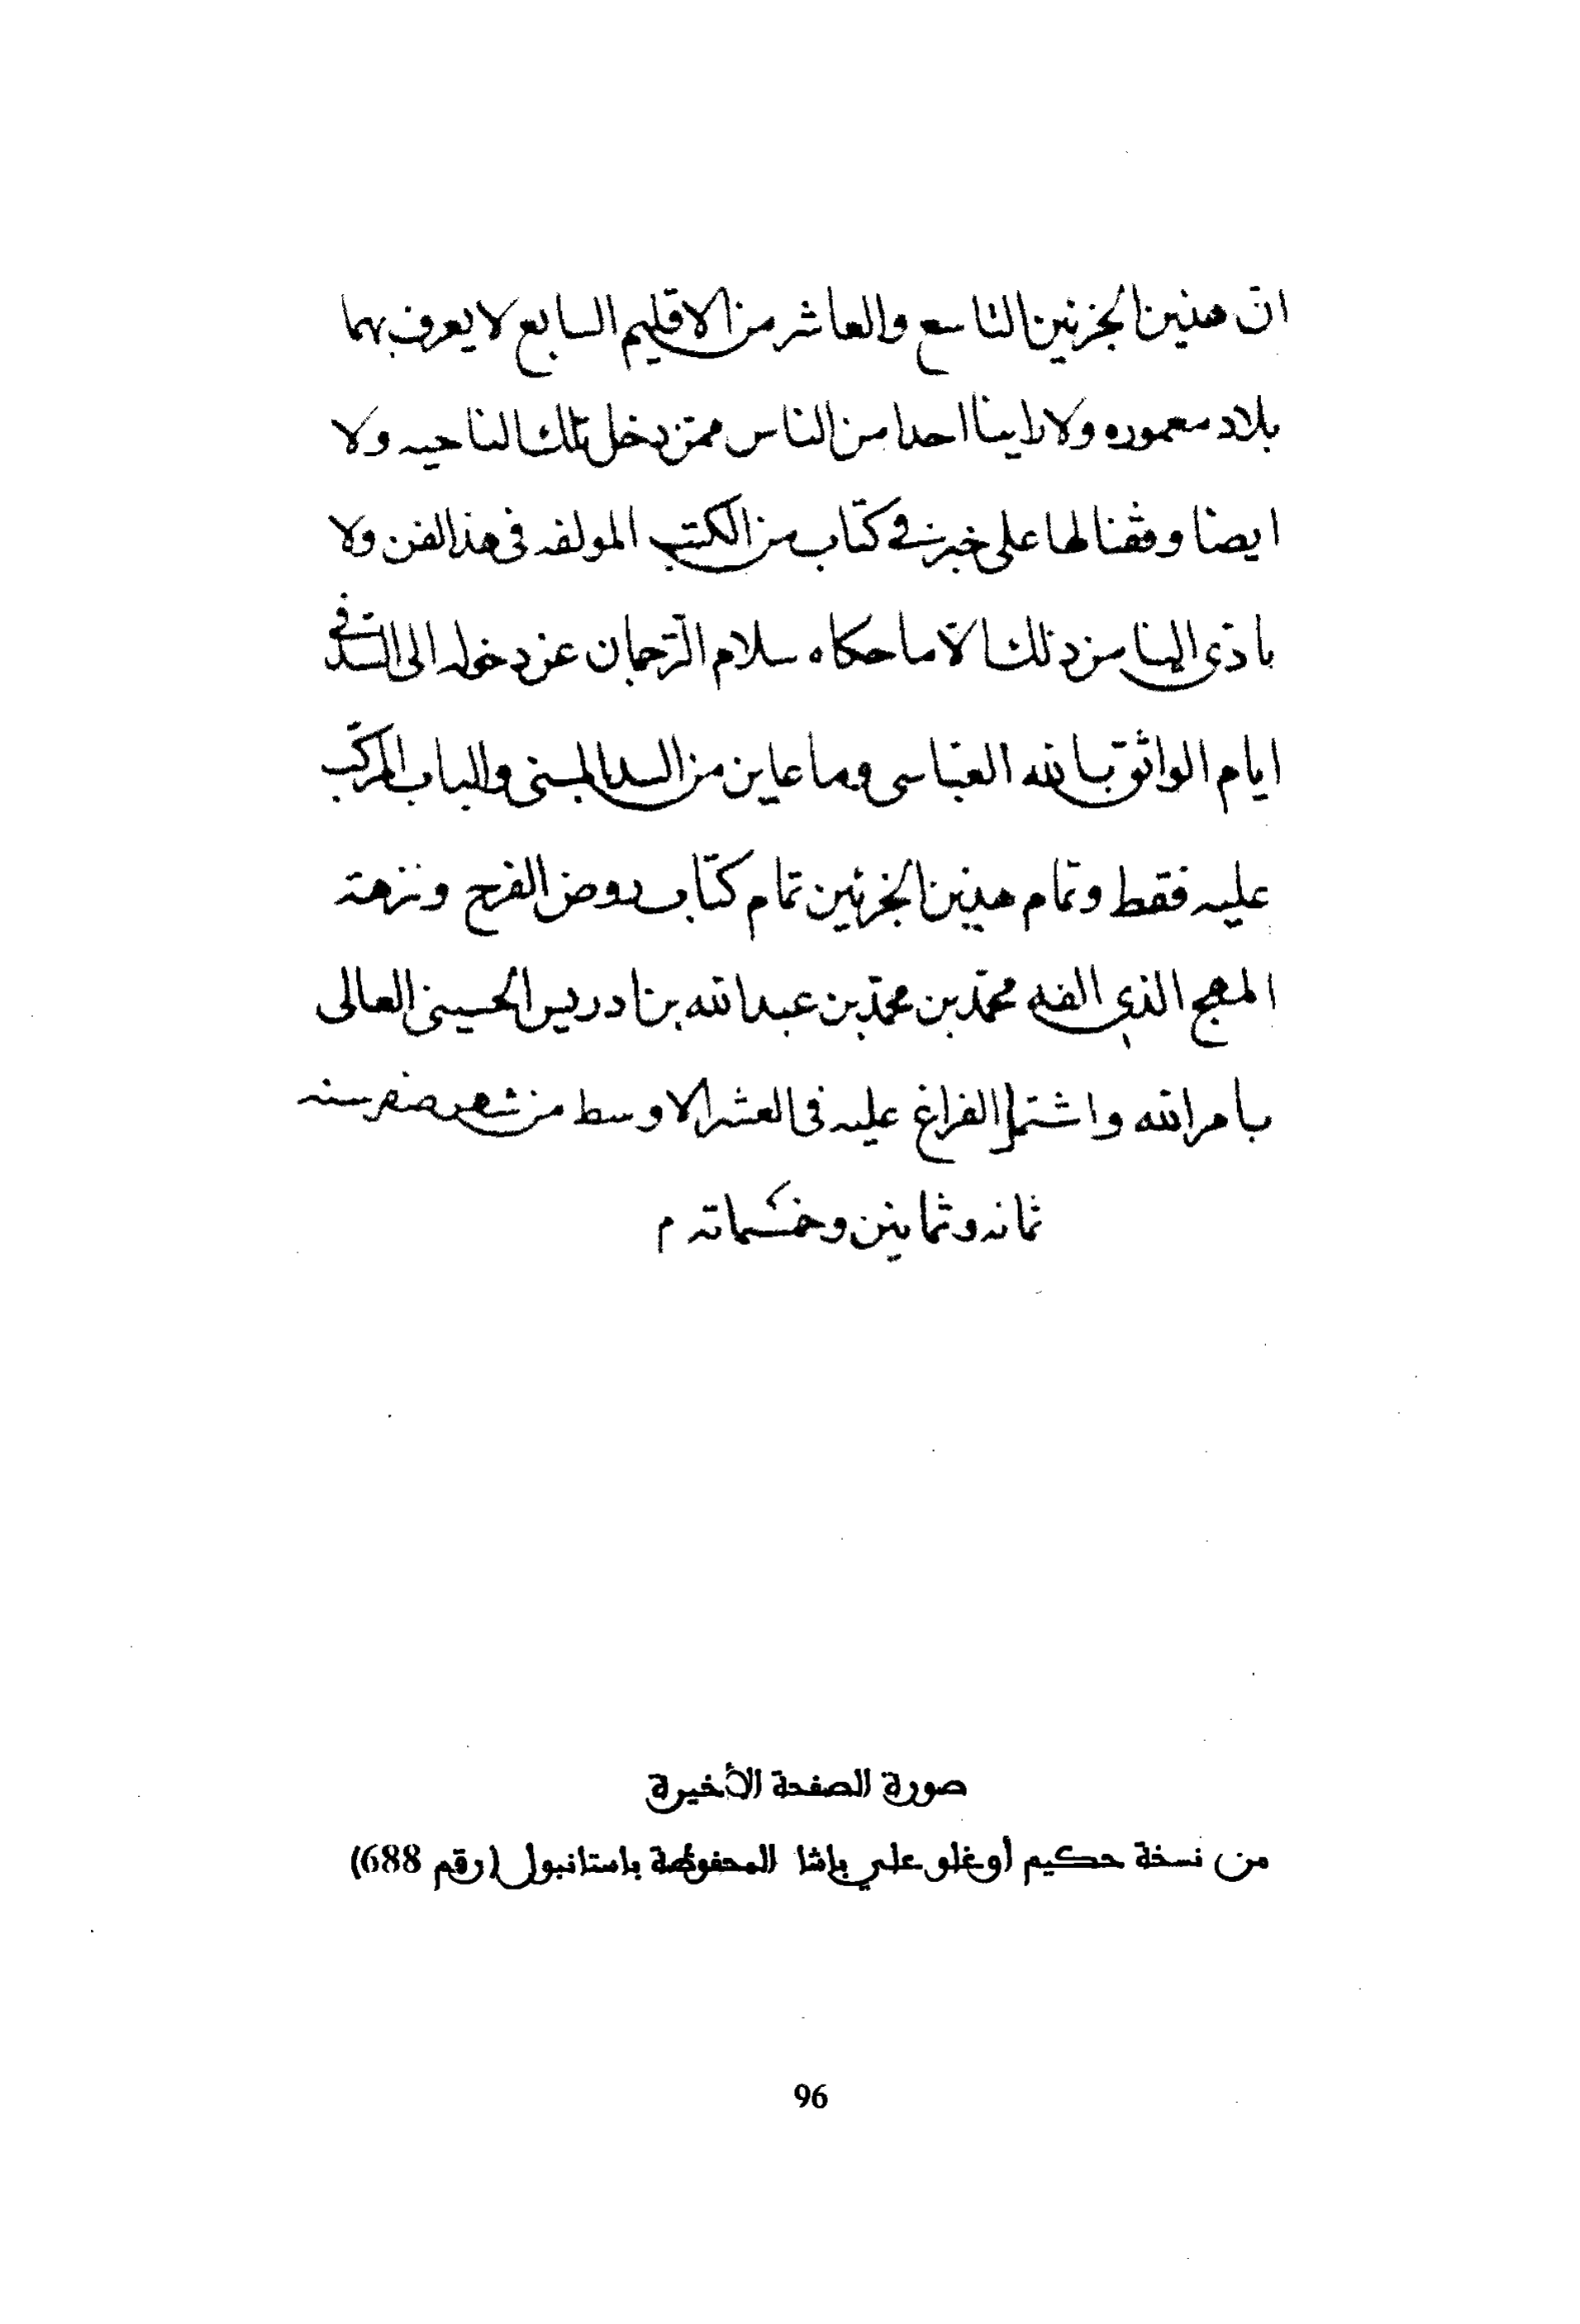 ان هذين الجزئين التاسع والعاشر من الاقليم السابع لا يعرف بهما
بلاد معموره ولا راينا احدا من الناس ممن دخل تلك الناحيه ولا
ايضا وقفنا لها على خبر في كتاب من الكتب المولفه في هذا الفن ولا
تادى الينا من ذلك الا ما حكاه سلام الترجمان عن دخوله الى السد في
ايام الواثق بالله العباسى وما عاين من السد المبنى والباب المركب
عليه فقط وتمام هذين الجزئين تمام كتاب روض الفرج ونزهة
المهج الذي الفه محمد بن محمد بن عبد الله بن ادريس الحسينى العالى
بامر الله واشتمل الفراغ عليه في العشر الاوسط من شهر صفر سنه
ثمانه وثمانين وخمسماته م
صورة الصفحة الأخيرة
من نسخة حكيم أوغلو علي باشا المحفوظة باستانبول (رقم 688)
96